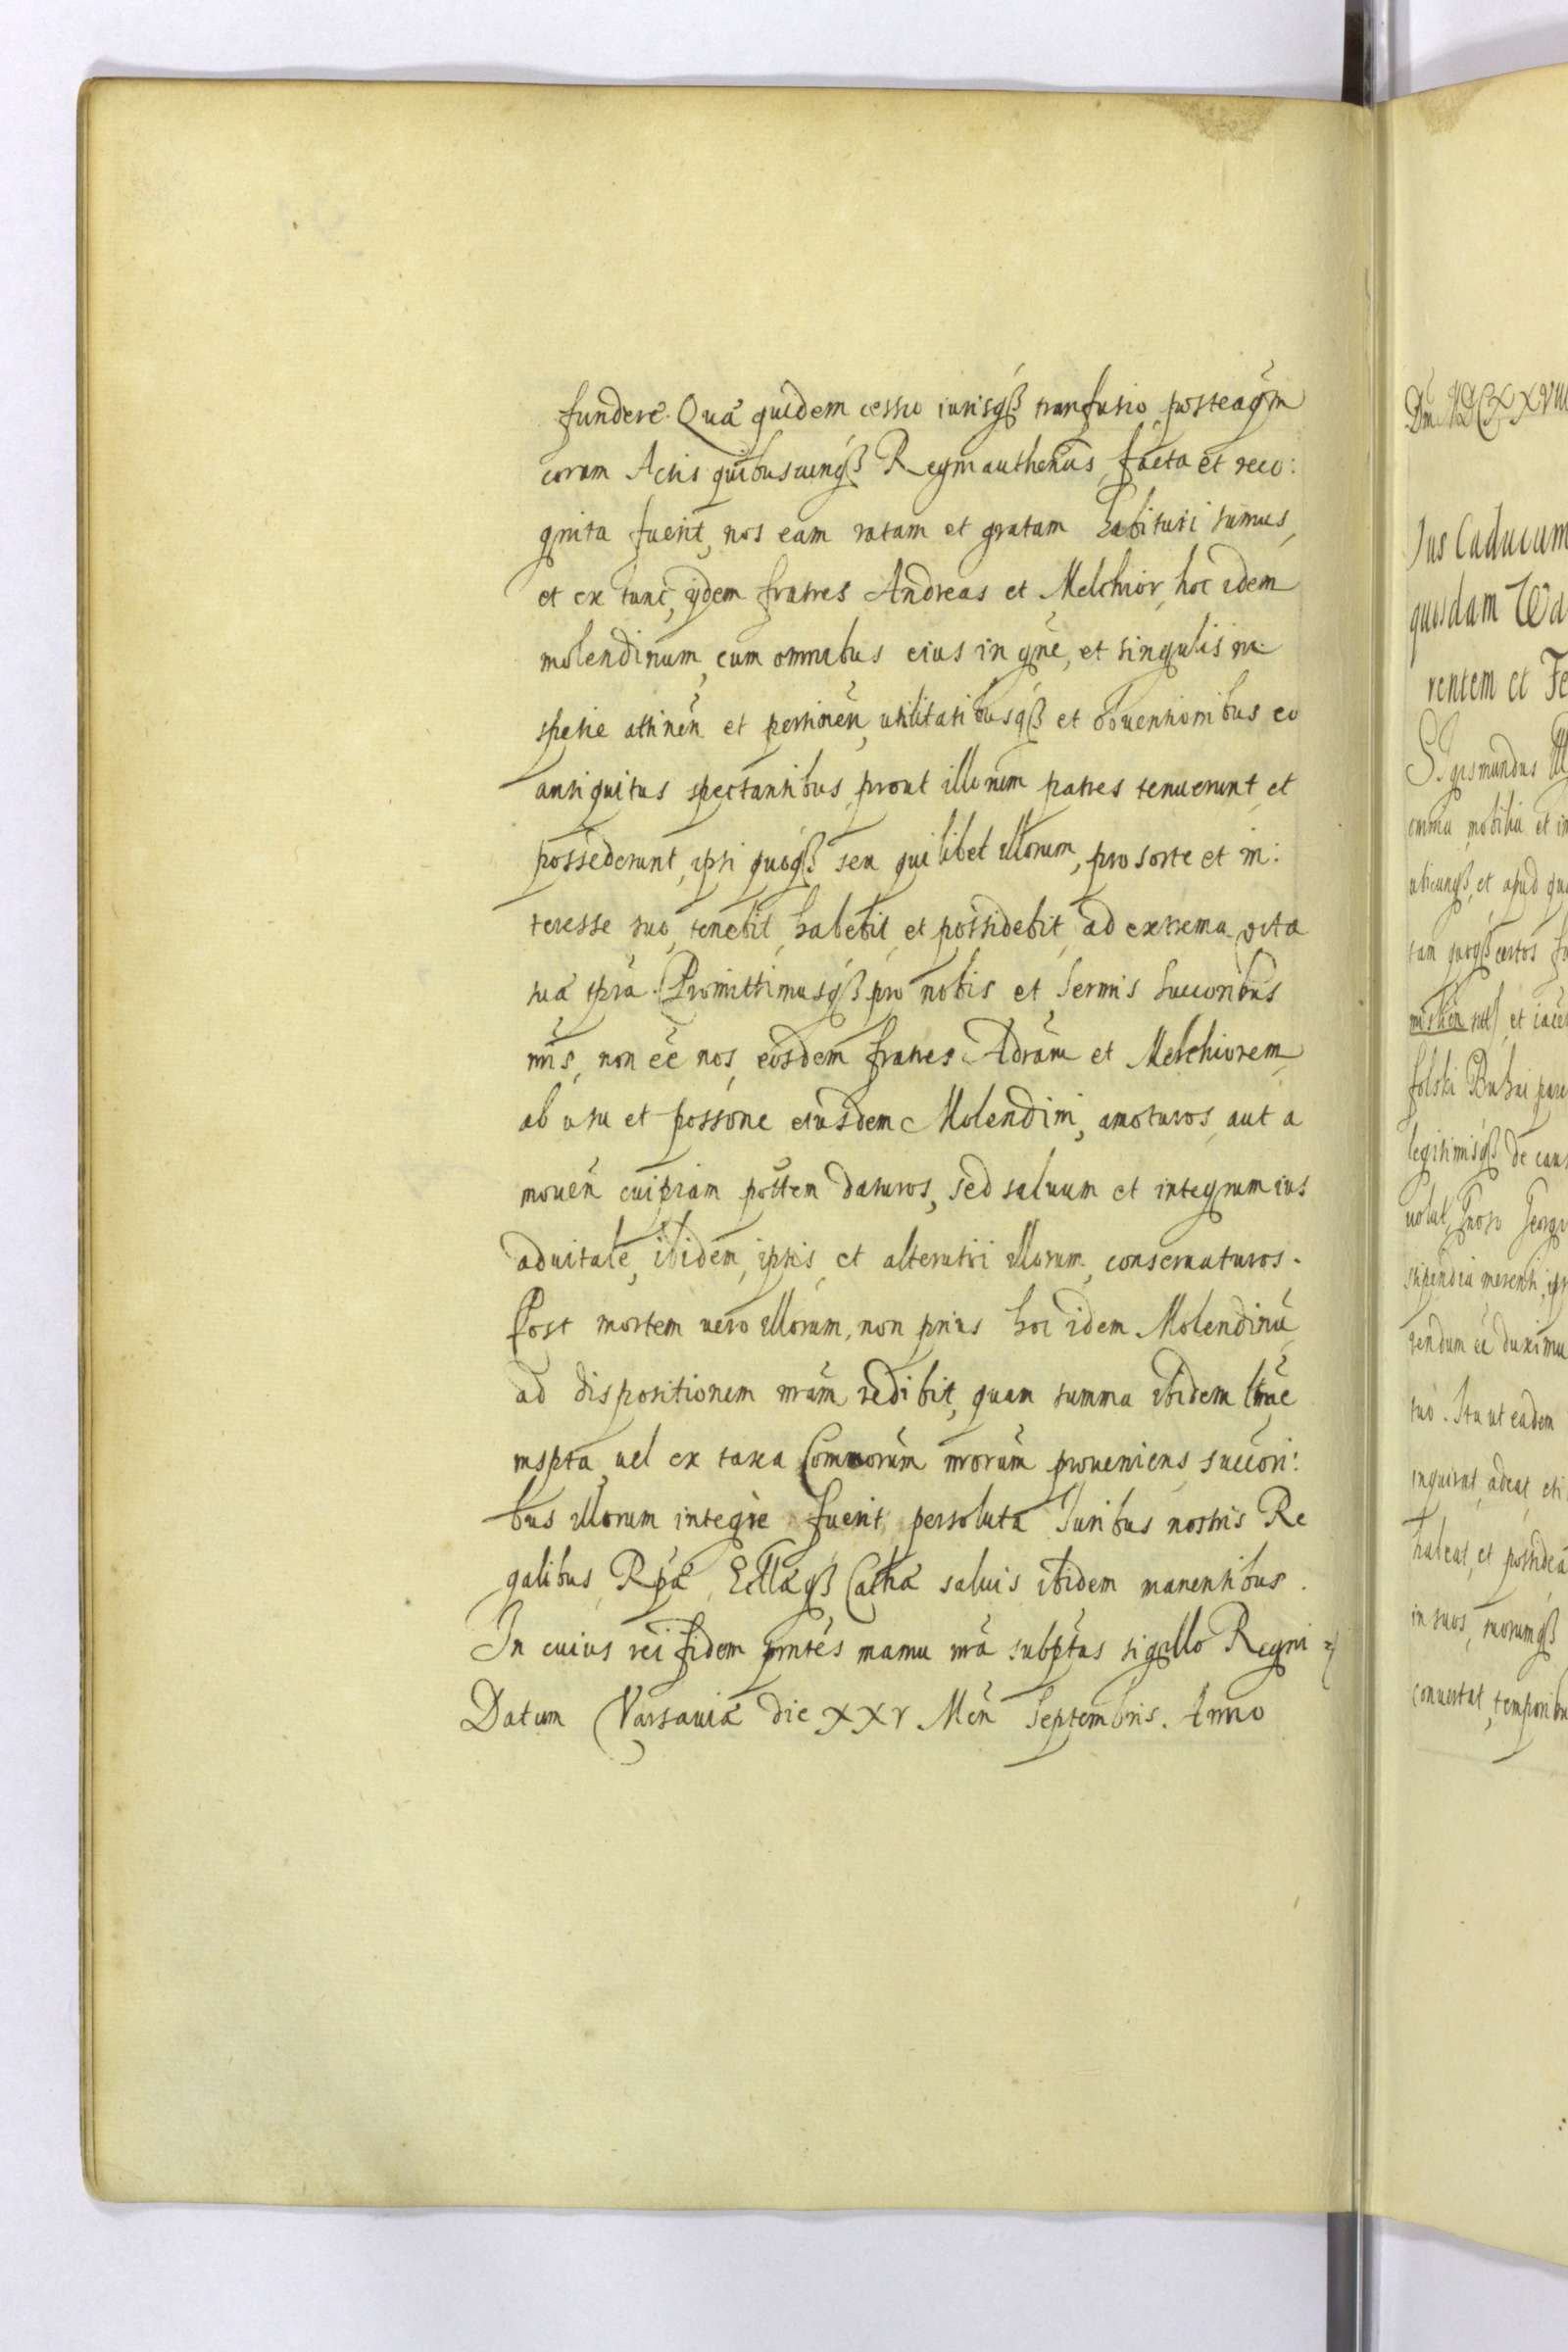 fundere. Quæ quidem cessio iurisqß tranfusio, posteaq̃m
coram Actis quibuscunqß Regni authenticis, facta et reco:
gnita fuerit, nos eam ratam et gratam habituri sumus,
et ex tunc, ijdem fratres Andreas et Melchior, hoc idem
molendinum, cum omnibus eius in gñe, et singulis in
spetie attineñ et pertineñ, utilitatibusqß et obuentionibus eo
antiquitus spectantibus, prout illorum patres tenuerunt, et
possederunt, ipsi quoqß seu quilibet illorum, pro sorte et in:
teresse suo, tenebit, habebit, et possidebit, ad extrema vitæ
suæ tp̃ra. Promittimusqß pro nobis et Sermis Succoribus
nr̃is, non eẽ nos, eosdem fratres Adrãm et Melchiorem
ab usu et possõne eiusdem Molendini, amoturos, aut a
moueñ cuipiam põttem daturos, sed saluum et integrum ius
aduitale, ibidem, ipsis, et alterutri illorum, conseruaturos.
Post mortem uero illorum, non prius hoc idem Molendinũ
ad dispositionem nr̃am redibit, quam summa ibidem lr̃me
inspta, uel ex taxa Commorũm nr̃orũm proueniens, succori:
bus illorum integre fuerit, persoluta Iuribus nostris Re
galibus, Rp̃æ, Ecllæqß Cathæ saluis ibidem manentibus.
In cuius rei fidem pñtes manu nr̃a subp̃tas sigillo Regni
Datum Varsauiæ die XXV Meñ Septembris. Anno
Dñi MDCXXVIII
Ius Caducum
quosdam Wa
rentem et Fe
Sigismundus
omnia, mobilia et i
ubicunqß, et apud qu
tam quoqß certos
et iace
legitimisqß de cau
Georgi
stipendia merenti
rendum eẽ duximu
suo. Ita ut eadem
inquirat, adeat, eti
habeat, et possidea
in suos, suorumqß
conuertat, temporibu